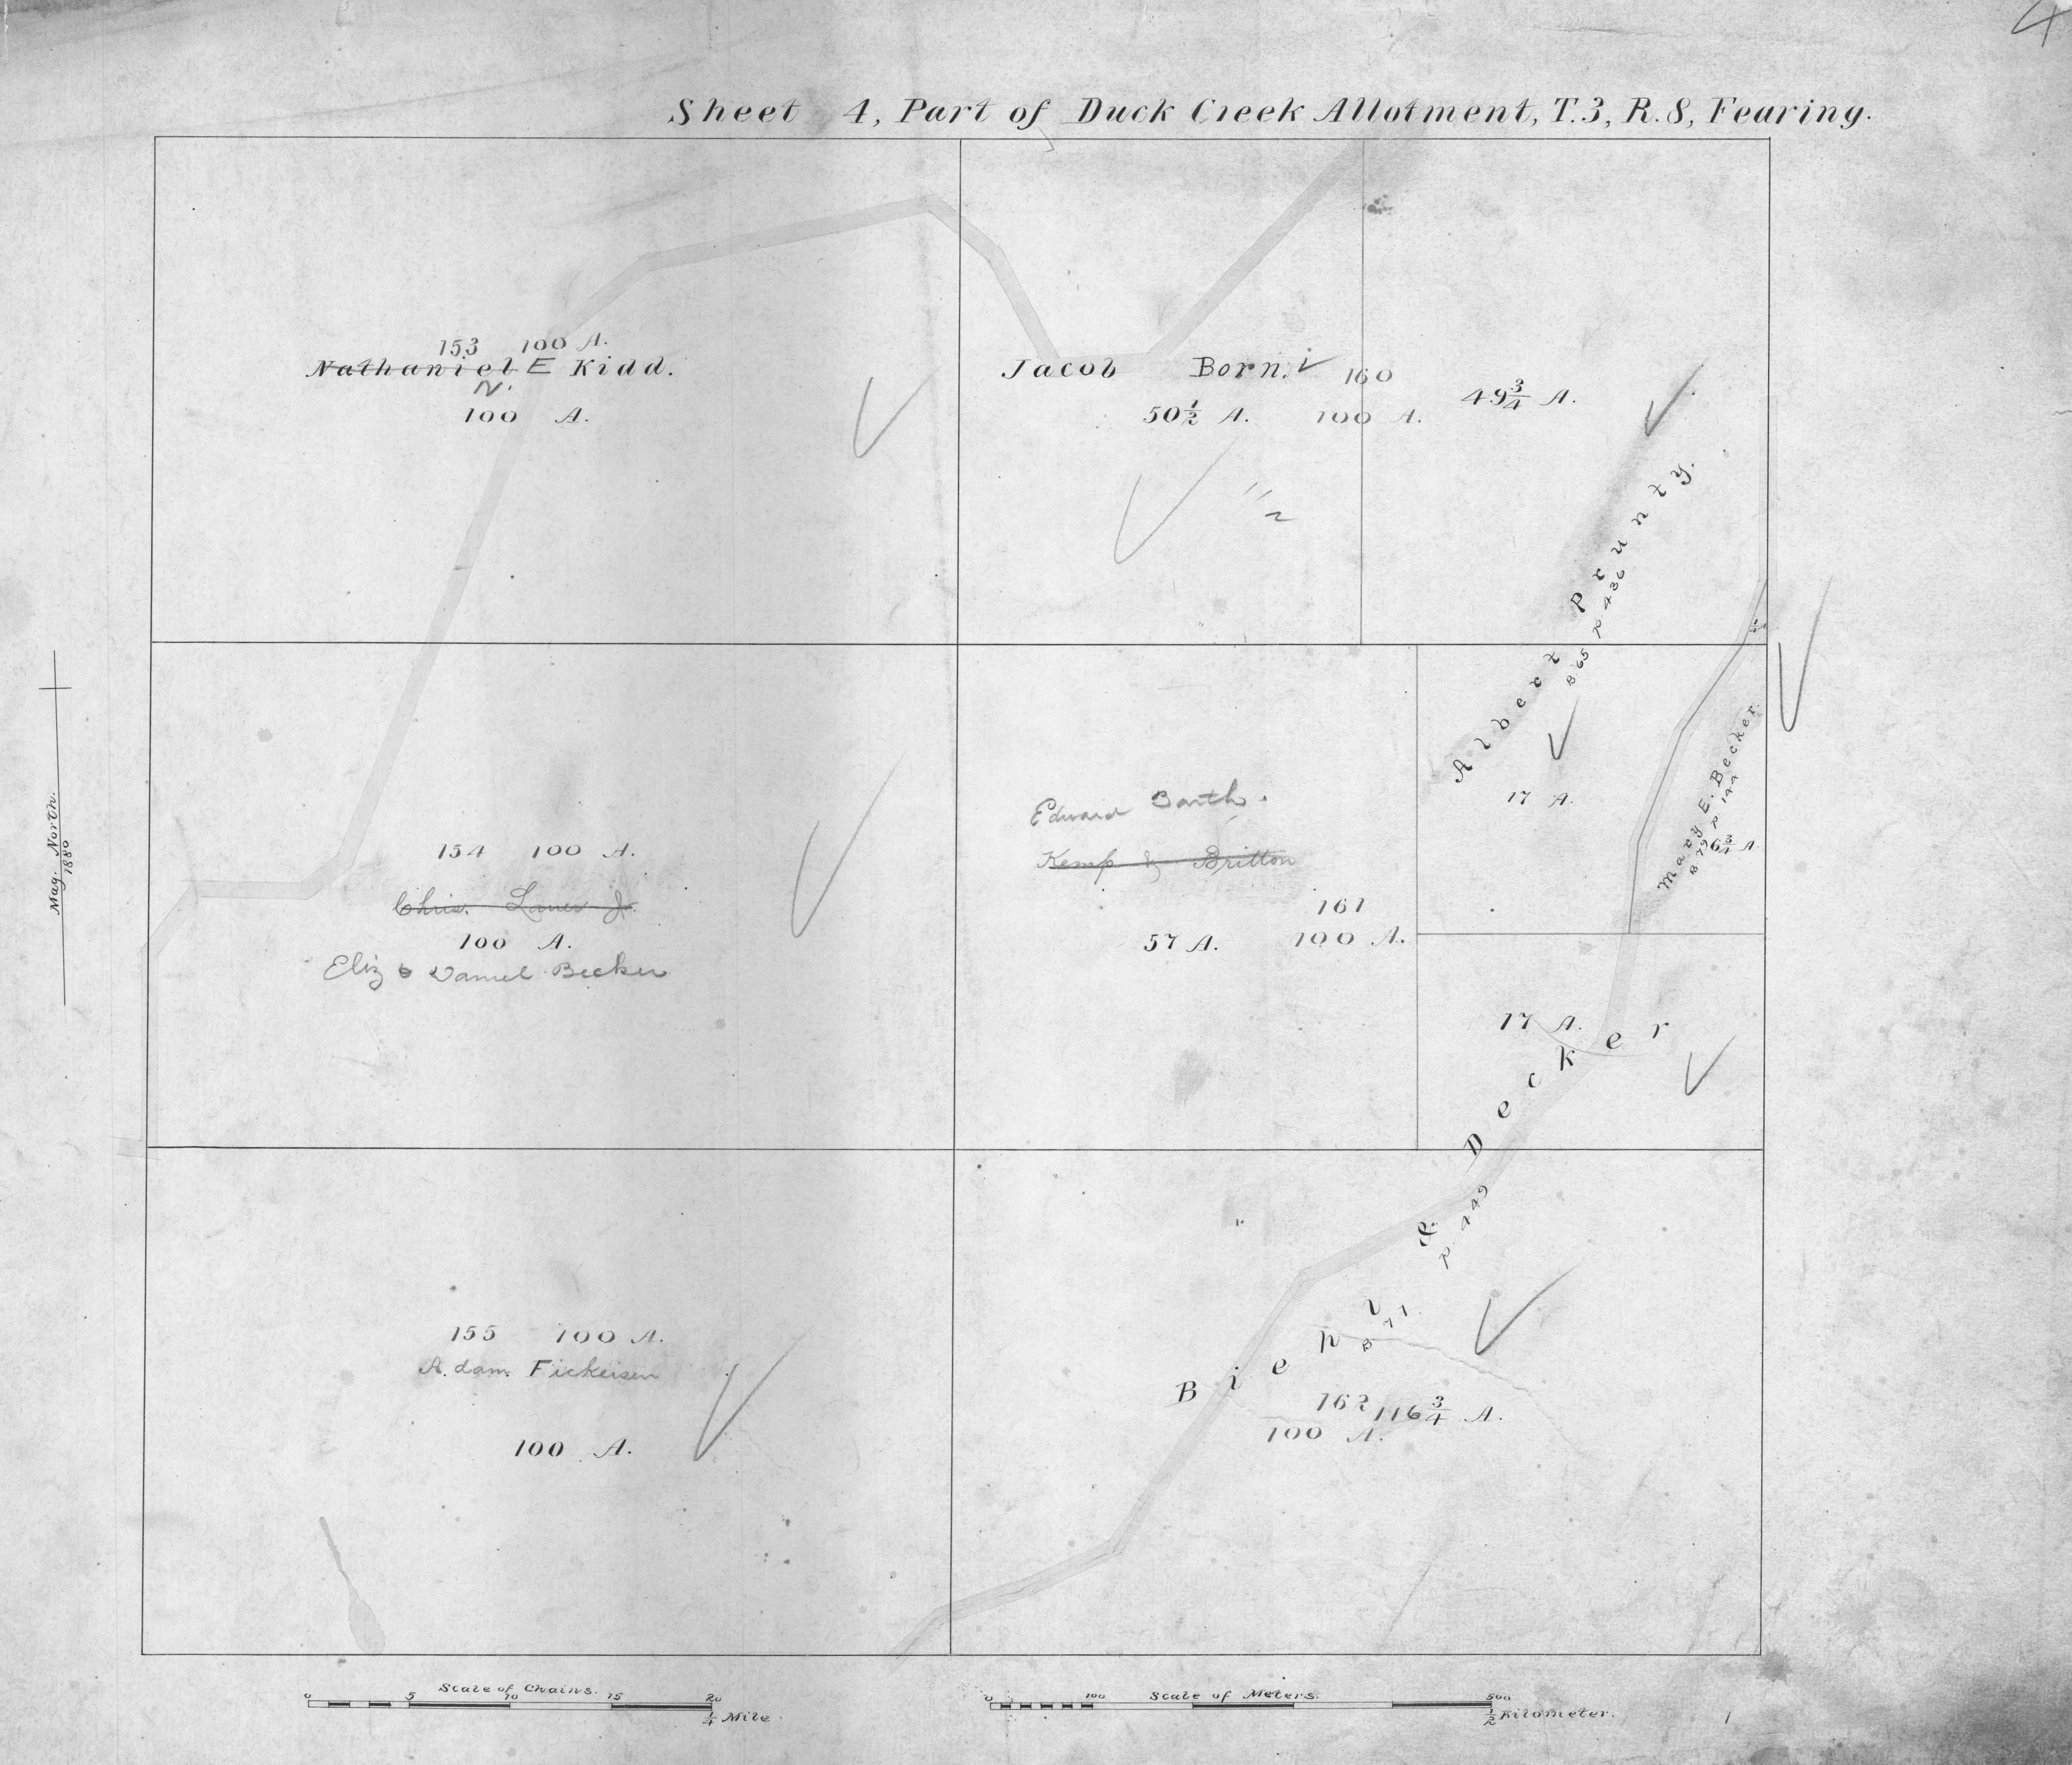 4
Sheet 4, Part of Duck Creek Allotment, T.3, R.8, Fearing.
153 100 A.
Nathaniel E Kidd.
N.
100 A.
Jacob Born.
160
50 1/2 A. 100 A.
49 3/4 A.
Albert Prunty.
B. 65 p. 436
17 A.
Mary E. Becker.
B 79 p 144
6 3/4 A.
Mag. North.
1880
154 100 A.
Chris. Lauer Jr.
100 A.
Eliz & Daniel Becker
Edward Barth.
Kemp & Britton
161
57 A. 100 A.
17 A.
Biepl & Decker
B 71 p. 449
162 116 3/4 A.
100 A.
155 100 A.
Adam Fickeisen
100 A.
Scale of Chains.
0 5 10 15 20
1/4 Mile
Scale of Meters.
0 100 500
1/2 Kilometer.